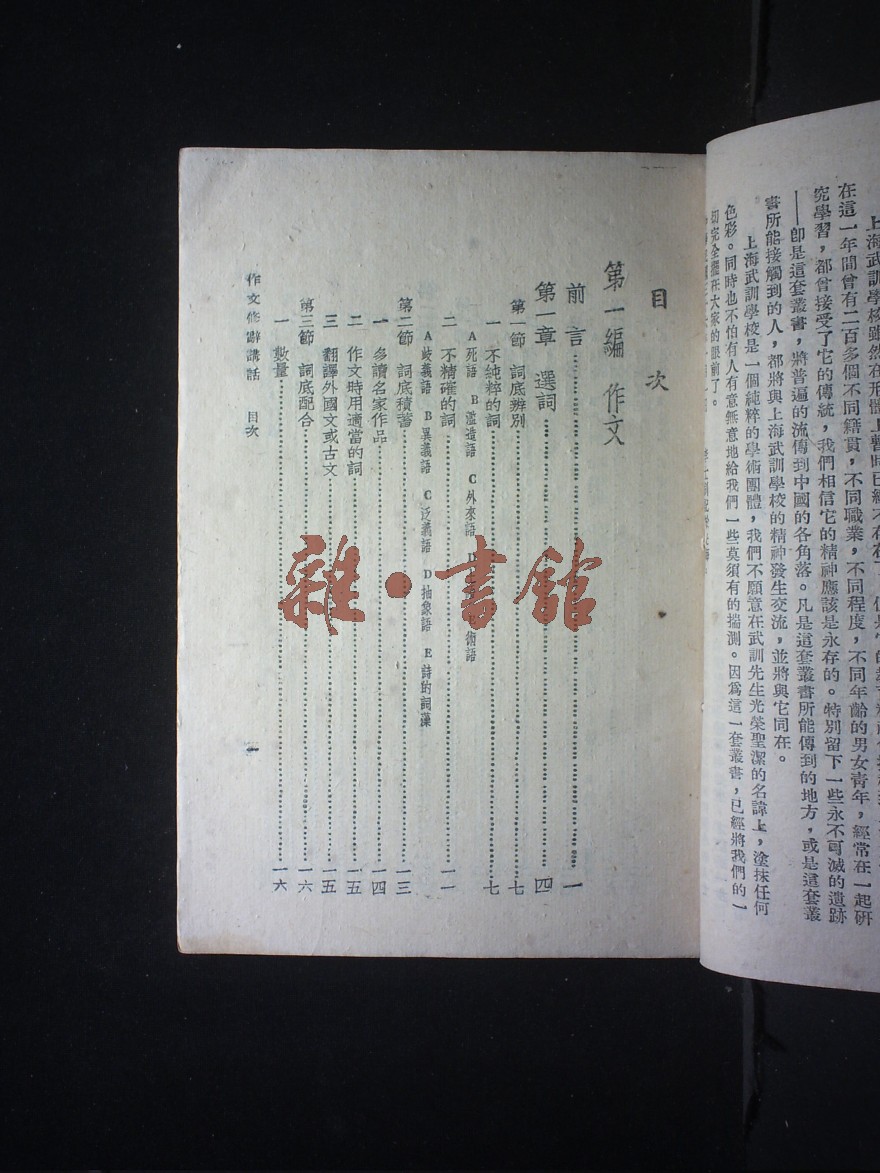 上海武訓學校雖然在形體上暫時已經不存在
在這一年間曾有二百多個不同籍貫，不同職業，不同程度，不同年齡的男女青年，經常在一起研
究學習，都曾接受了它的傳統，我們相信它的精神應該是永存的。特別留下一些永不可滅的遺跡
——卽是這套叢書，將普遍的流傳到中國的各角落。凡是這套叢書所能傳到的地方，或是這套叢
書所能接觸到的人，都將與上海武訓學校的精神發生交流，並將與它同在。
上海武訓學校是一個純粹的學術團體，我們不願意在武訓先生光榮聖潔的名諱上，塗抹任何
色彩。同時也不怕有人有意無意地給我們一些莫須有的揣測。因爲這一套叢書，已經將我們的一
切完全擺在大家的眼前了。
目次
第一編 作文
前言……一
第一章 選詞……四
第一節 詞底辨別……七
一 不純粹的詞……七
A 死語 B 濫造語 C 外來語 D 術語
二 不精確的詞……一一
A 歧義語 B 異義語 C 泛義語 D 抽象語 E 詩的詞藻
第二節 詞底積蓄……一三
一 多讀名家作品……一四
二 作文時用適當的詞……一五
三 翻譯外國文或古文……一五
第三節 詞底配合……一六
一 數量……一六
作文修辭講話 目次
一
雜·書館